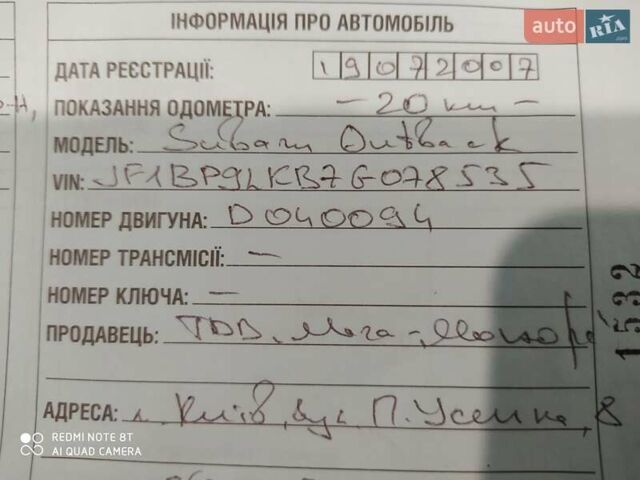 ІНФОРМАЦІЯ ПРО АВТОМОБІЛЬ
auto RIA .com
ДАТА РЕЄСТРАЦІЇ: 19072007
ПОКАЗАННЯ ОДОМЕТРА: -20 км-
МОДЕЛЬ: Subaru Outback
VIN: JF1BP9LKB7G078535
НОМЕР ДВИГУНА: D040094
НОМЕР ТРАНСМІСІЇ: —
НОМЕР КЛЮЧА: —
ПРОДАВЕЦЬ: ТОВ
АДРЕСА: м. Київ, вул. П. Усенка, 8
1532
REDMI NOTE 8T
AI QUAD CAMERA